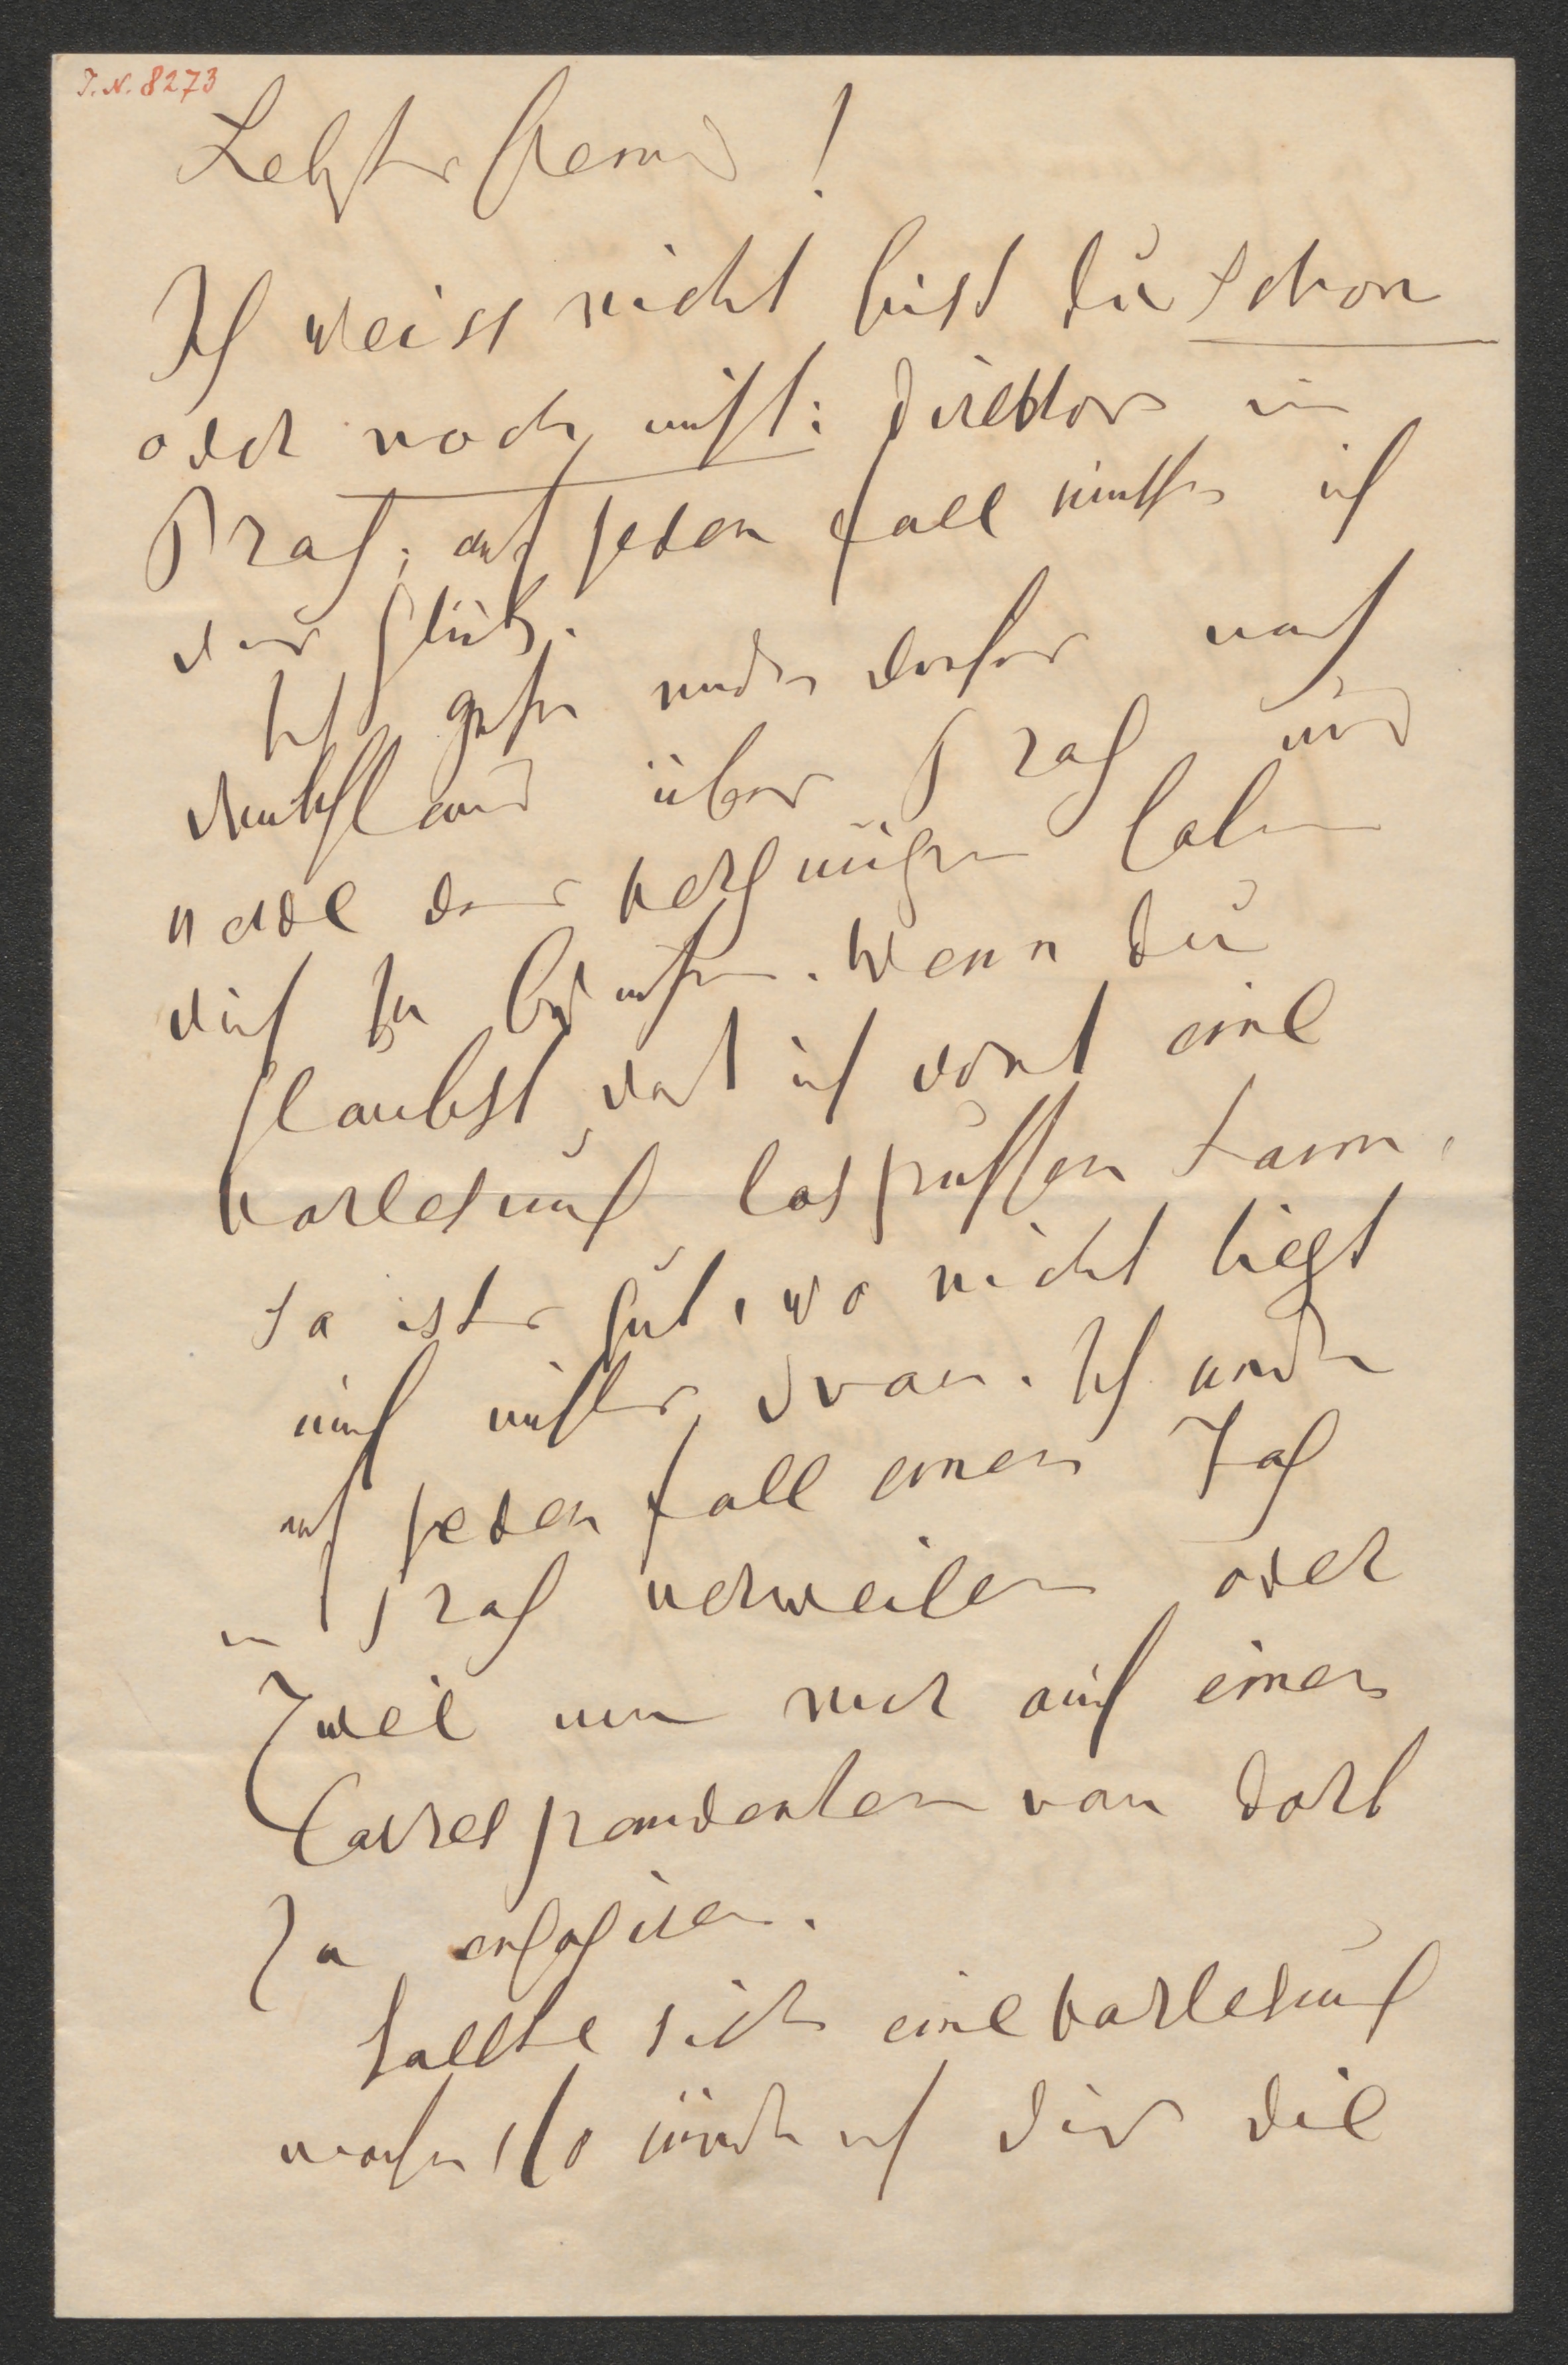 I.N. 8273
Liebster Freund!
Ich weiss nicht bist du schon
oder noch nicht: Direktor in
Prag; auf jeden Fall wünsche ich
dir Glück.
Ich gehe wieder nach
Deutschland über Prag und
werde das Vergnügen haben
dich zu besuchen. Wenn du
glaubst, dass ich dort eine
Vorlesung loslassen kann,
so ist es gut, wo nicht liegt
mir nichts daran. Ich werde
auf jeden Fall einen Tag
in Prag verweilen oder
Zwei um mir auch einen
Correspondenten von dort
zu engagiren.
Sollte sich eine Vorlesung
machen, so würde ich dir die